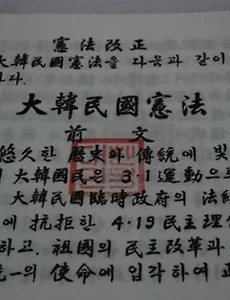 憲法改正
大韓民國憲法을 다음과 같이
다.
大韓民國憲法
前文
悠久한 歷史와 傳統에 빛
리 大韓民國은 3·1運動으로
大韓民國臨時政府의 法
에 抗拒한 4·19民主理
하고, 祖國의 民主改革과
統一의 使命에 입각하여 正